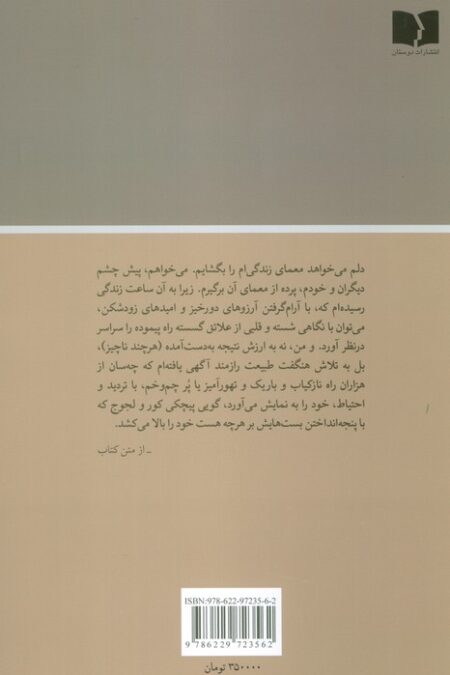 انتشارات دبستان
دلم می‌خواهد معمای زندگی‌ام را بگشایم. می‌خواهم، پیش چشم
دیگران و خودم، پرده از معمای آن برگیرم. زیرا به آن ساعت زندگی
رسیده‌ام که، با آرام‌گرفتن آرزوهای دورخیز و امیدهای زودشکن،
می‌توان با نگاهی شسته و قلبی از علائق گسسته راه پیموده را سراسر
درنظر آورد. و من، نه به ارزش نتیجه به‌دست‌آمده (هرچند ناچیز)،
بل به تلاش هنگفت طبیعت رازمند آگهی یافته‌ام که چه‌سان از
هزاران راه نازکیاب و باریک و تهورآمیز یا پُر چم‌وخم، با تردید و
احتیاط، خود را به نمایش می‌آورد، گویی پیچکی کور و لجوج که
با پنجه‌انداختن بست‌هایش بر هرچه هست خود را بالا می‌کشد.
ـ از متن کتاب
ISBN:978-622-97235-6-2
9 786229 723562
۳۵۰۰۰۰ تومان